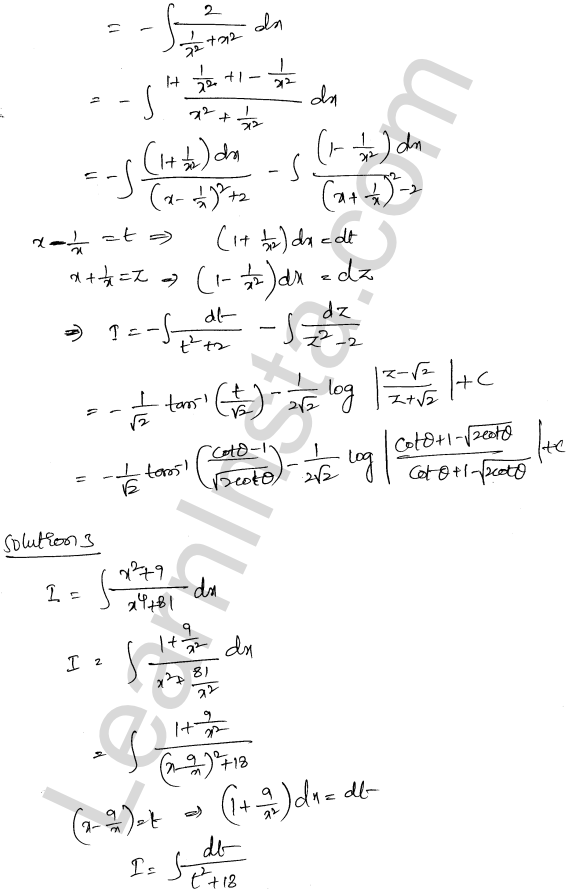 = - ∫ 2 / (1/x² + x²) dx
= - ∫ (1 + 1/x² + 1 - 1/x²) / (x² + 1/x²) dx
= - ∫ (1 + 1/x²) dx / ((x - 1/x)² + 2) - ∫ (1 - 1/x²) dx / ((x + 1/x)² - 2)
x - 1/x = t ⇒ (1 + 1/x²) dx = dt
x + 1/x = z ⇒ (1 - 1/x²) dx = dz
⇒ I = - ∫ dt / (t² + 2) - ∫ dz / (z² - 2)
= - 1/√2 tan⁻¹ (t/√2) - 1/2√2 log |(z - √2) / (z + √2)| + C
= - 1/√2 tan⁻¹ ((cotθ - 1) / √2cotθ) - 1/2√2 log |(cotθ + 1 - √2cotθ) / (cotθ + 1 - √2cotθ)| + C
Solution 3
I = ∫ (x² + 9) / (x⁴ + 81) dx
I = ∫ (1 + 9/x²) / (x² + 81/x²) dx
= ∫ (1 + 9/x²) / ((x - 9/x)² + 18)
(x - 9/x) = t ⇒ (1 + 9/x²) dx = dt
I = ∫ dt / (t² + 18)
LearnInsta.com